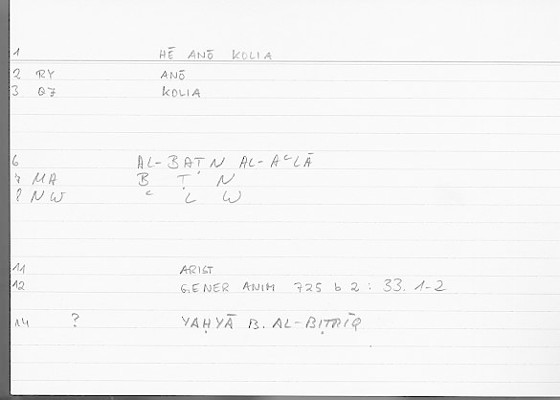 1 HĒ ANŌ KOLIA
2 RY ANŌ
3 07 KOLIA
6 AL-BAṬN AL-AʿLĀ
7 MA B Ṭ N
8 NW ʿ L W
11 ARIST
12 GENER ANIM 725 b 2 : 33.1-2
14 ? YAḤYĀ B. AL-BIṬRĪQ